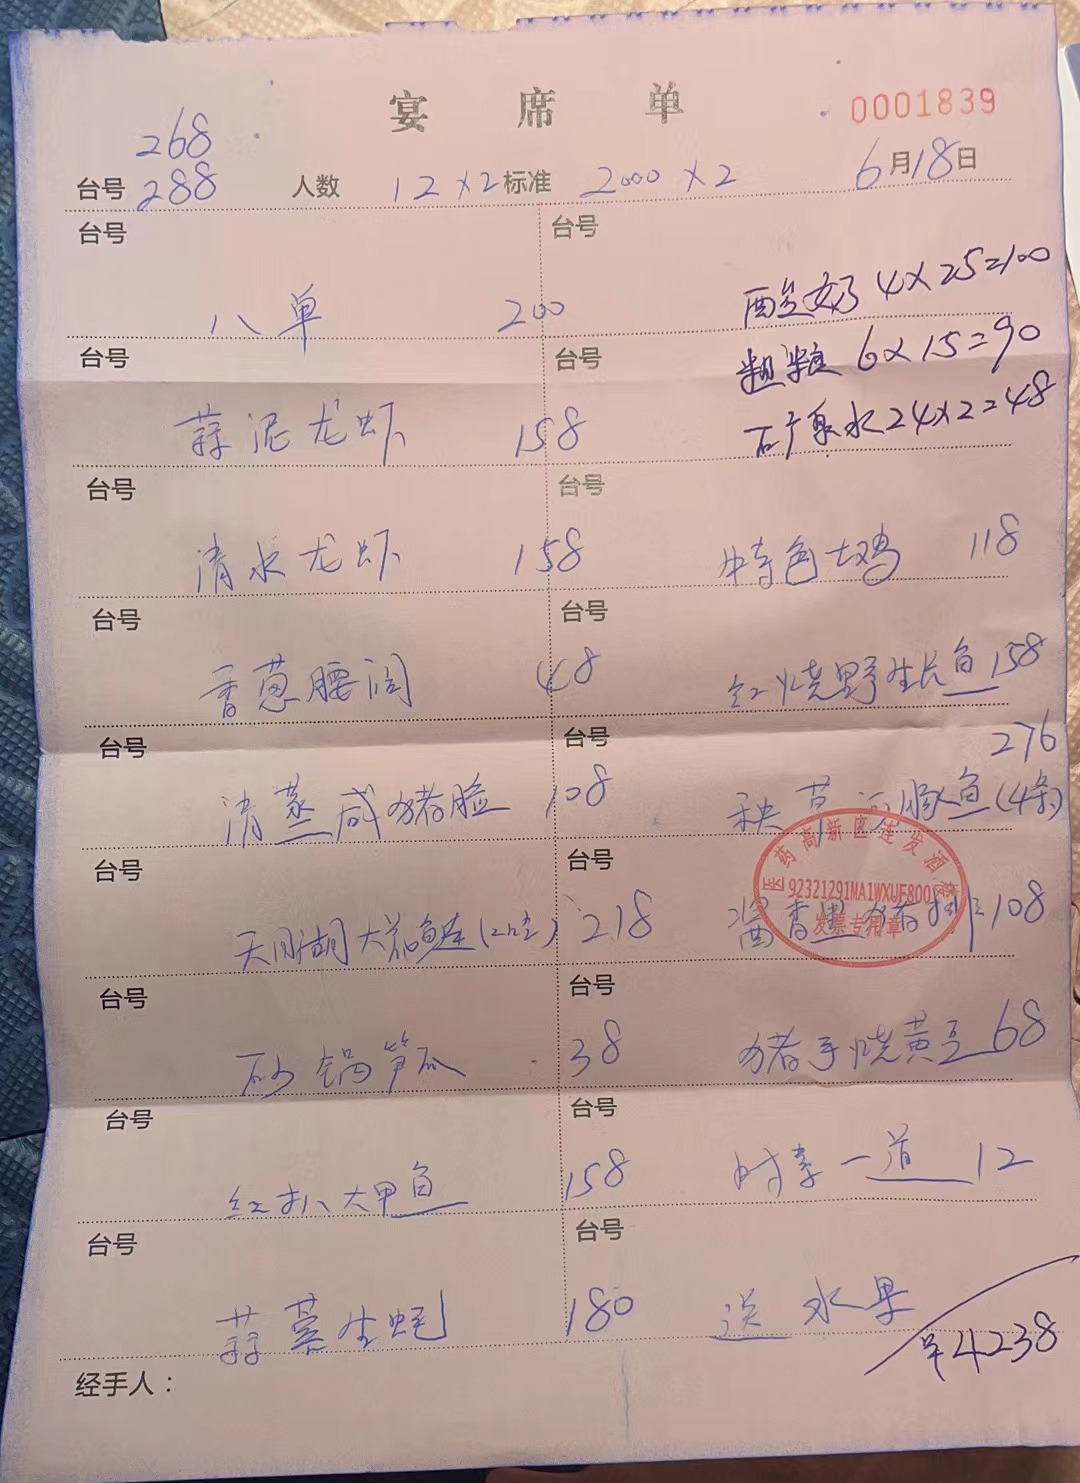 宴席单
0001839
268
台号 288 人数 12×2 标准 2000×2 6月18日
台号 台号
八单 200 酸奶 4×25=100
台号 台号 粗粮 6×15=90
蒜泥龙虾 158 矿泉水 24×2=48
台号 台号
清水龙虾 158 特色土鸡 118
台号 台号
香葱腰润 48 红烧野生长鱼 158
台号 台号 276
清蒸咸猪脸 108 秧草河豚鱼(4条)
台号 台号
医药高新区连发酒
92321291MA1WXUF800
发票专用章
天目湖大花鲢 218 酱香黑猪 108
台号 台号
砂锅笋瓜 38 猪手烧黄豆 68
台号 台号
红扒大甲鱼 158 时素一道 12
台号 台号
蒜蒸生蚝 180 送水果
¥4238
经手人：